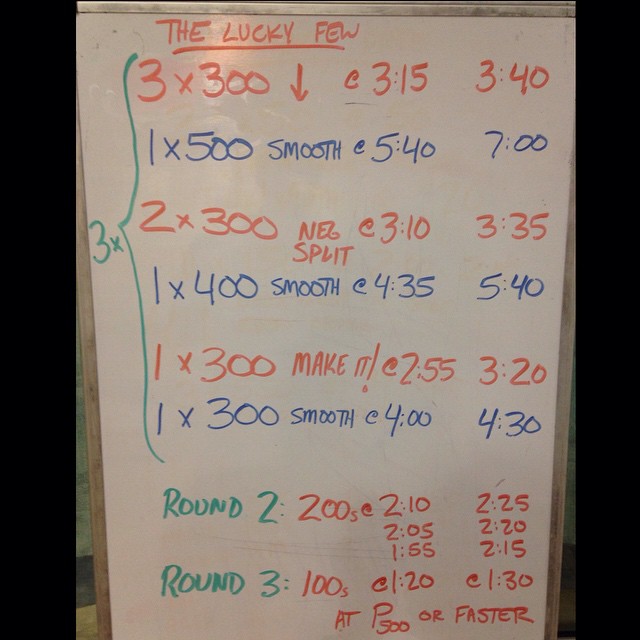 THE LUCKY FEW
3 x 300 ↓ @ 3:15 3:40
1 x 500 SMOOTH @ 5:40 7:00
3x
2 x 300 NEG SPLIT @ 3:10 3:35
1 x 400 SMOOTH @ 4:35 5:40
1 x 300 MAKE IT! @ 2:55 3:20
1 x 300 SMOOTH @ 4:00 4:30
ROUND 2: 200s @ 2:10 2:25
2:05 2:20
1:55 2:15
ROUND 3: 100s @1:20 @1:30
AT P500 OR FASTER